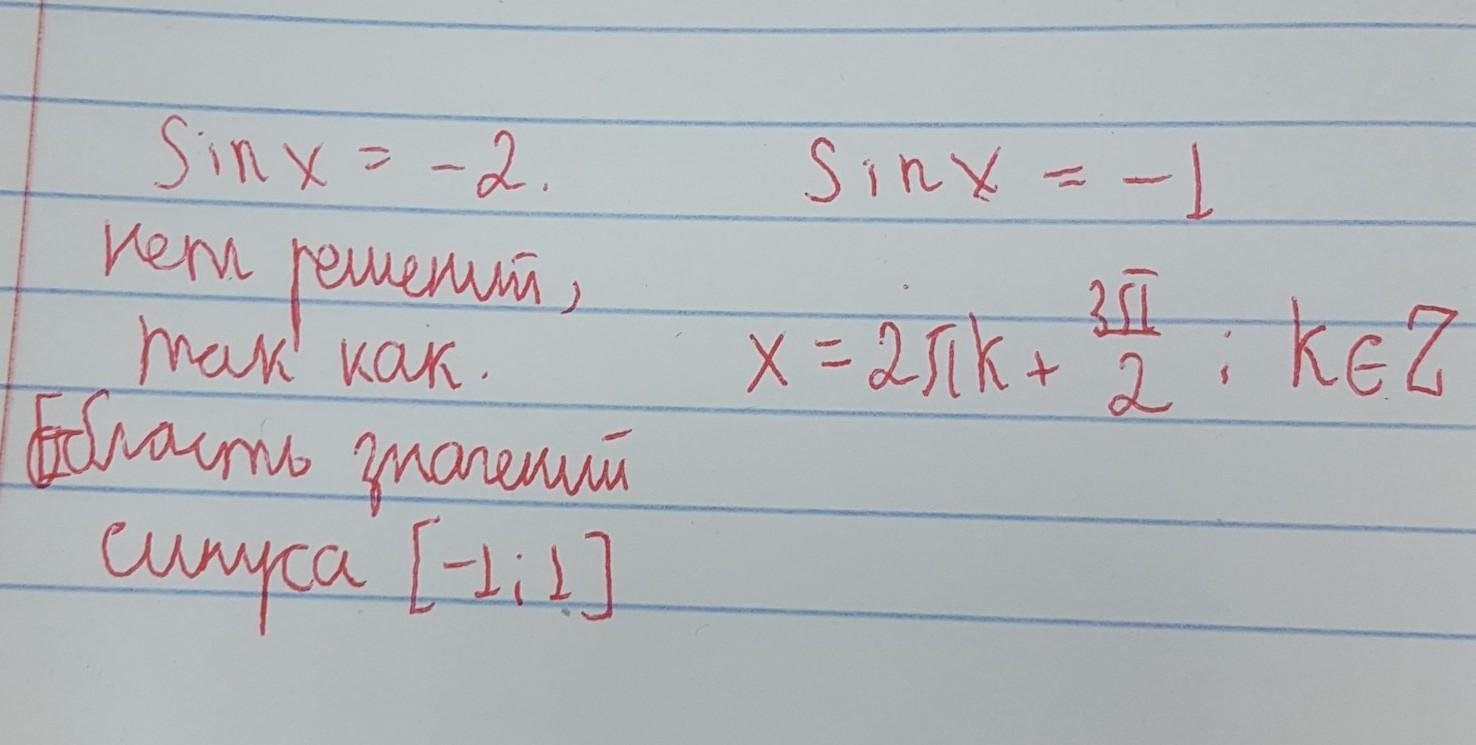 Sin x = -2.
нет решений,
так как.
Область значений
синуса [-1; 1]
Sin x = -1
x = 2πk + 3π/2 ; k ∈ Z